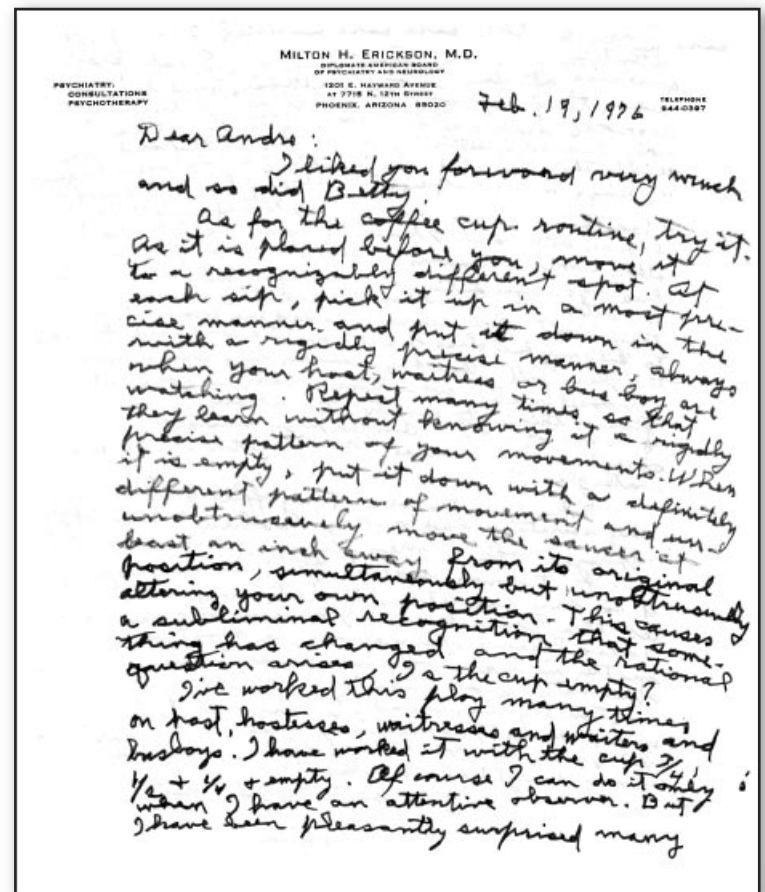 MILTON H. ERICKSON, M.D.
DIPLOMATE AMERICAN BOARD
OF PSYCHIATRY AND NEUROLOGY
1201 E. HAYWARD AVENUE
AT 7715 N. 12TH STREET
PHOENIX, ARIZONA 85020
PSYCHIATRY:
CONSULTATIONS
PSYCHOTHERAPY
TELEPHONE
944-0387
Feb. 19, 1976
Dear Andre:
I liked you foreword very much
and so did Betty.
As for the coffee cup routine, try it.
As it is placed before you, move it
to a recognizably different spot. At
each sip, pick it up in a most pre-
cise manner and put it down in the
with a rigidly precise manner, always
when your host, waitress or bus boy are
watching. Repeat many times so that
they learn without knowing it a rigidly
precise pattern of your movements. When
it is empty, put it down with a definitely
different pattern of movement and un-
unobtrusively move the saucer at
least an inch away from its original
position, simultaneously but unobtrusively
altering your own position. This causes
a subliminal recognition that some-
thing has changed and the rational
question arises, Is the cup empty?
I've worked this ploy many times
on host, hostesses, waitresses and waiters and
busboys. I have worked it with the cup 3/4,
1/2 + 1/4 + empty. Of course I can do it only
when I have an attentive observer. But
I have been pleasantly surprised many